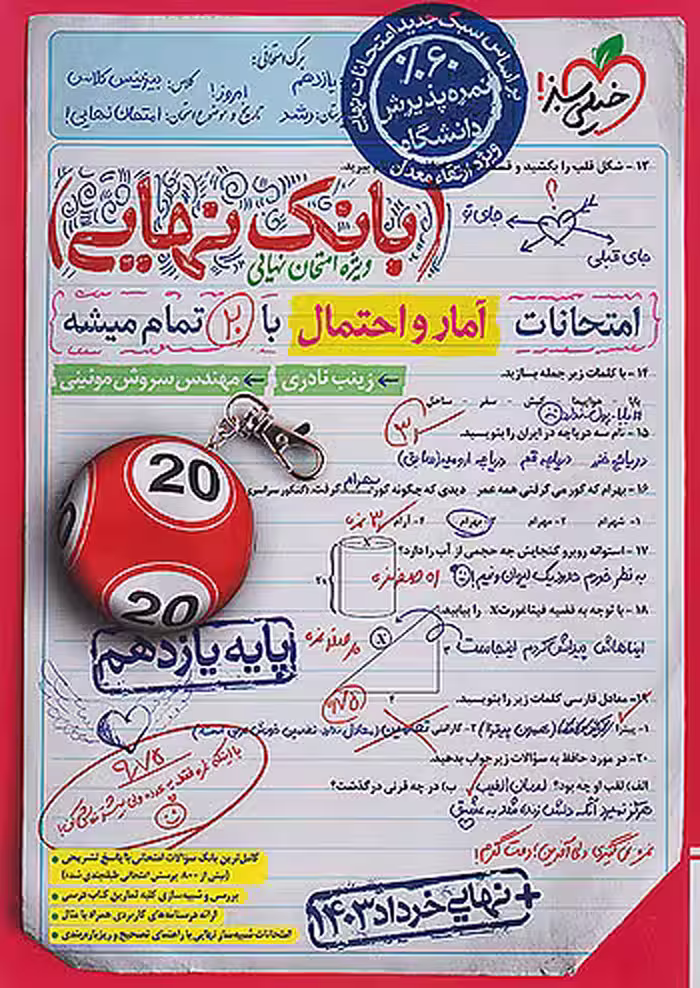 برگ امتحانی:
یازدهم
کلاس: بیزینس کلاس
رشد
امروز!
تاریخ و موضوع امتحان: امتحان نهایی!
بر اساس سبک جدید امتحانات نهایی
٪۶۰
نمره پذیرش
دانشگاه
ویژه ارتقاء معدل
خیلی سبز!
۱۳ - شکل قلب را بکشید و
(بانک نهایی)
ویژه امتحان نهایی
جای تو
جای قبلی
امتحانات آمار و احتمال با ۲۰ تمام میشه
۱۴ - با کلمات زیر جمله بسازید.
زینب نادری
مهندس سروش موئینی
بابا - هواپیما - کیش - سفر - ساحل
بابا پول ندارد
۱۵ - نام سه دریاچه در ایران را بنویسید.
۳
دریاچه خزر دریاچه قم دریاچه ارومیه (سابق)
۱۶ - بهرام که گور می گرفتی همه عمر دیدی که چگونه گور بهرام گرفت. (کنکور سراسری
۱- شهرام ۲- مهرام ۳- بهرام ۴- آرام
۳ نمره
20
20
۱۷ - استوانه روبرو گنجایش چه حجمی از آب را دارد؟
X
۲۰
به نظر خودم
۱۸ - با توجه به قضیه فیثاغورث X را بیابید.
X
ایناهاش پیداش کردم اینجاست
۳
۴
پایه یازدهم
۹/۷۵
۱۹- معادل فارسی کلمات زیر را بنویسید.
۱- پیتزا
۲- گارانتی
تضمین
۲۰- در مورد حافظ به سؤالات زیر جواب بدهید.
الف) لقب او چه بود؟ لسان الغیب ب) در چه قرنی درگذشت؟
هرگز نمیرد آنکه دلش زنده شد به عشق
۹/۷۵
نمره نمی‌گیری ولی آفرین! دمت گرم!
کامل‌ترین بانک سؤالات امتحانی با پاسخ تشریحی
(بیش از ۸۰۰ پرسش امتحانی طبقه‌بندی شده)
بررسی و شبیه‌سازی کلیه تمارین کتاب درسی
ارائه درسنامه‌های کاربردی همراه با مثال
امتحانات شبیه‌ساز نهایی با راهنمای تصحیح و ریزبارم‌بندی
+ نهایی خرداد ۱۴۰۳